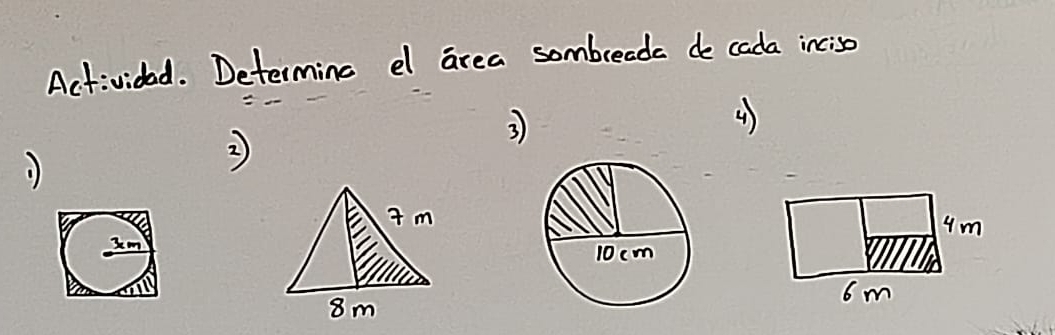 Actividad. Determina el área sombreada de cada inciso
1)
2)
3)
4)
3cm
7 m
8 m
10 cm
4 m
6 m